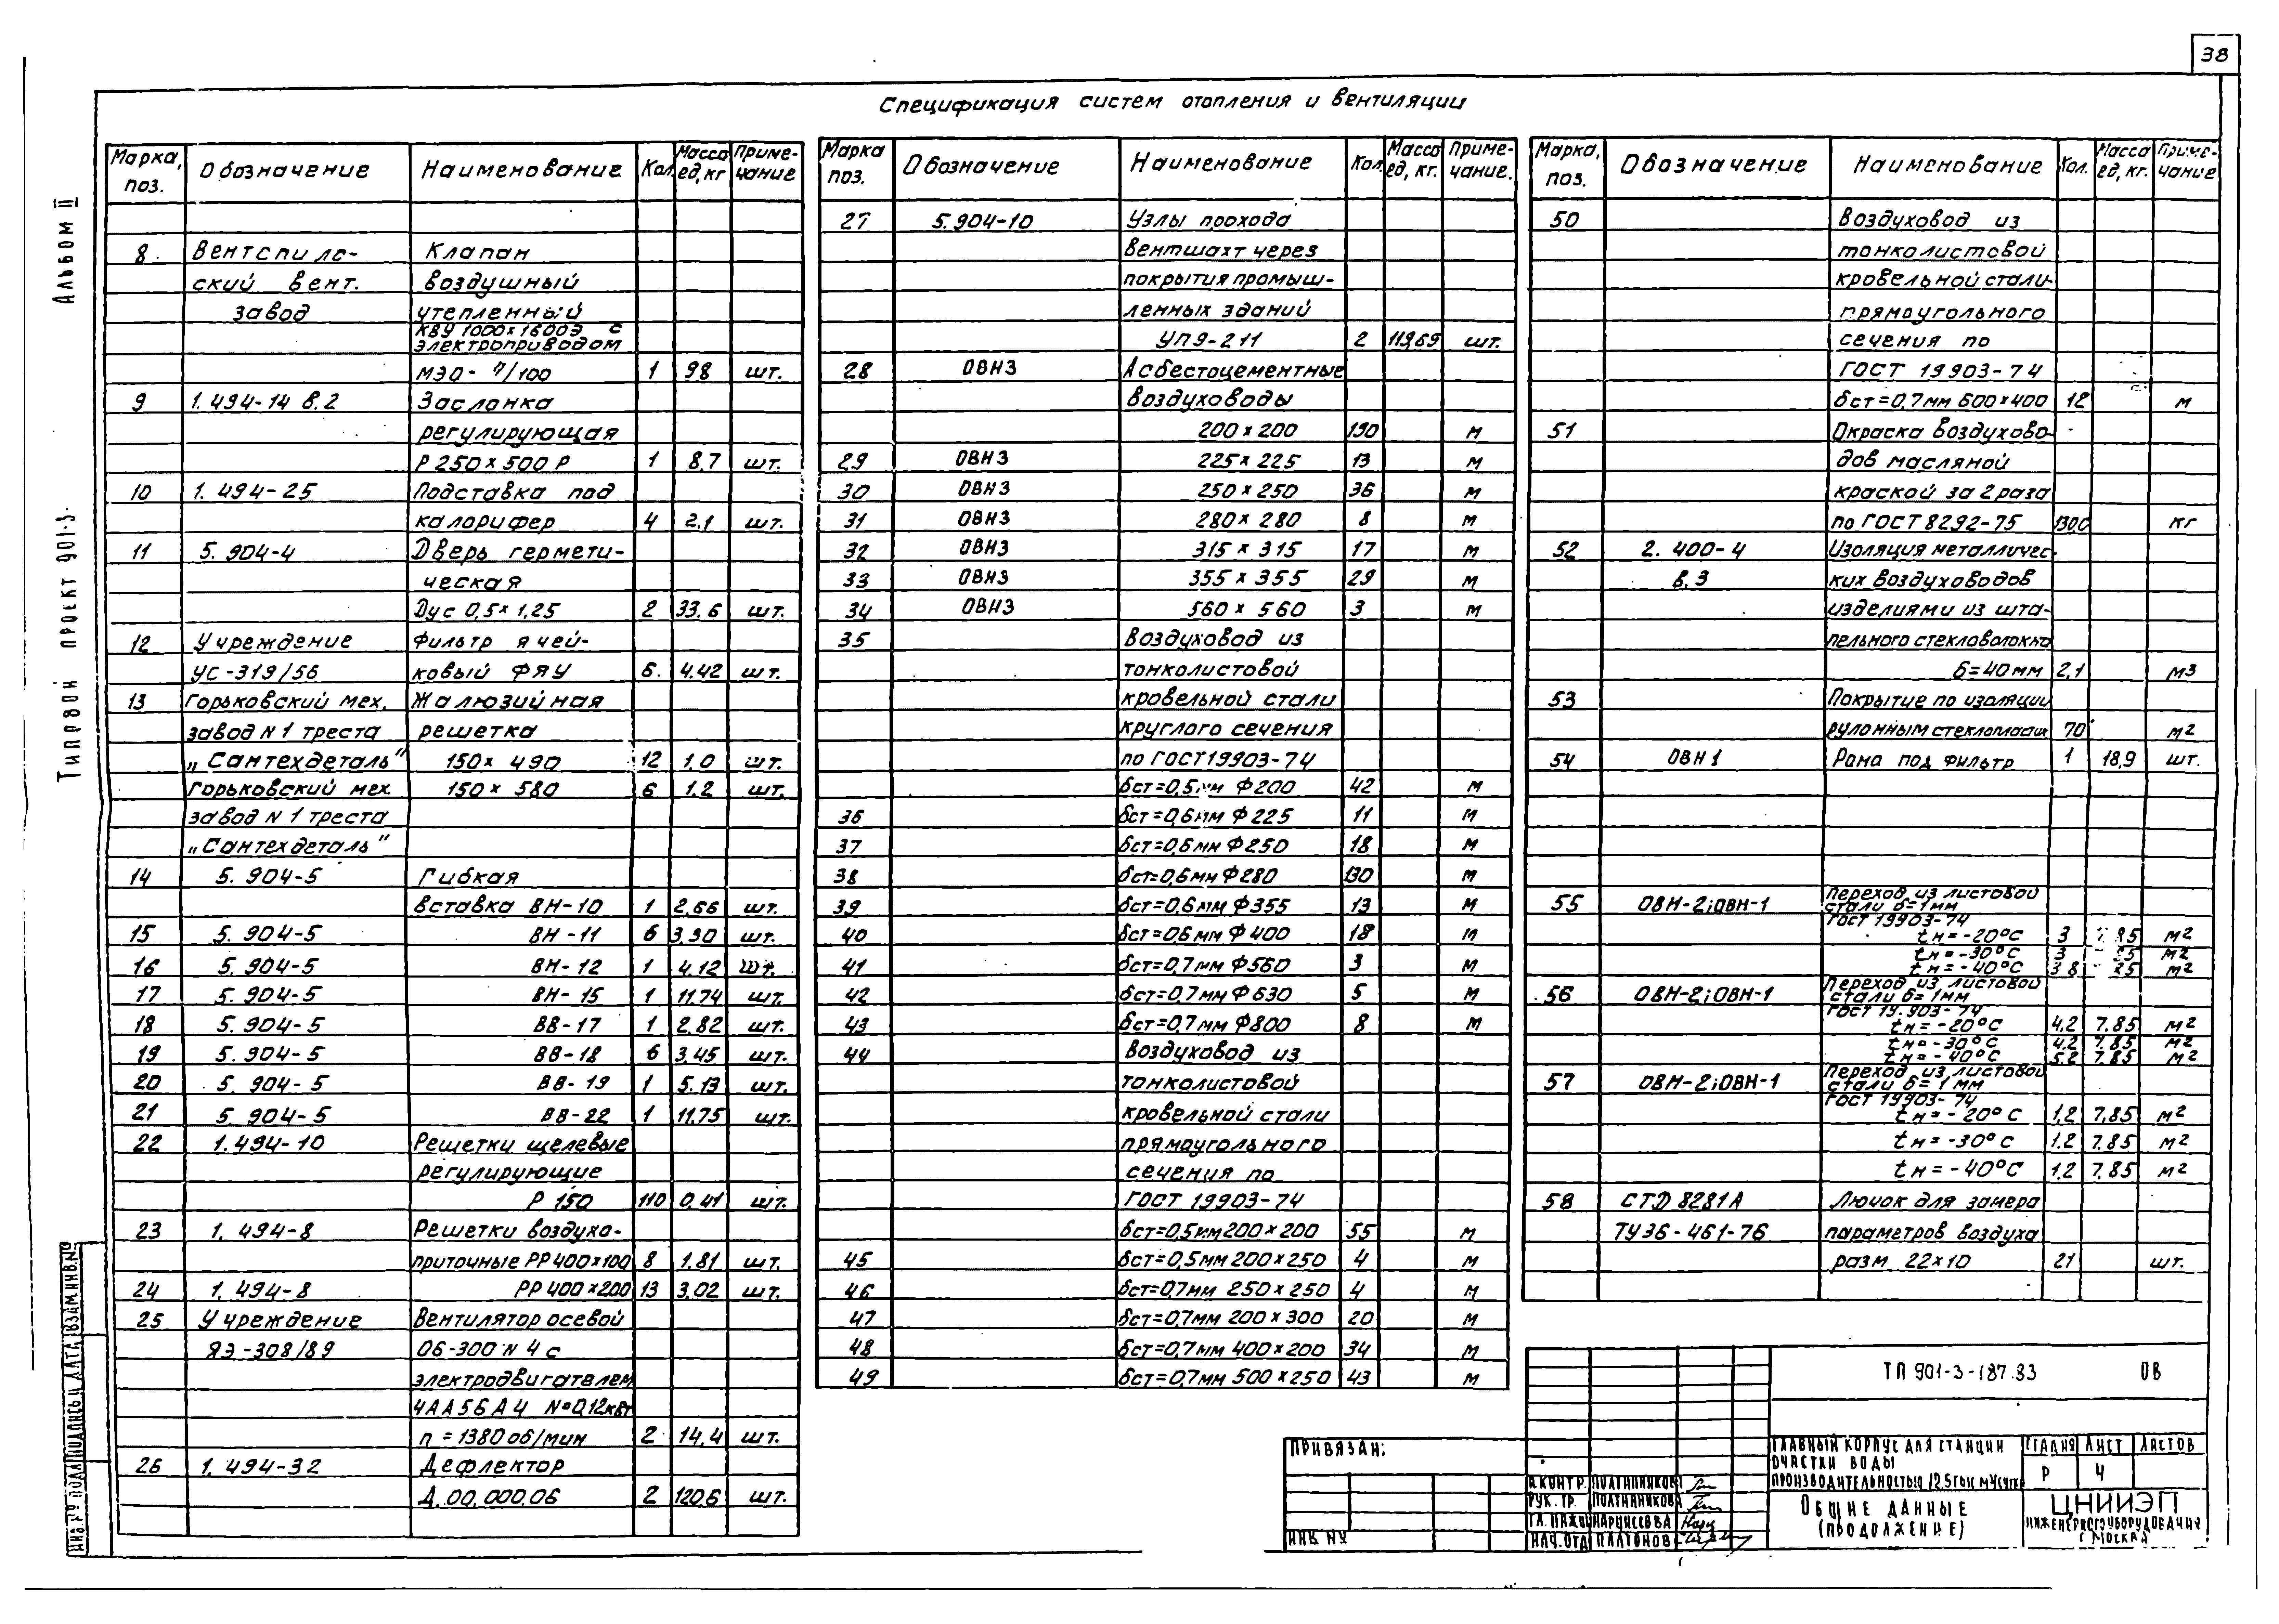 38
Спецификация систем отопления и вентиляции
Альбом II
Типовой проект 901-3.
Марка, поз. Обозначение Наименование Кол. Масса ед, кг Примечание
8 Вентспилс- Клапан
ский вент. воздушный
завод утепленный
КВУ 1000×1600Э с
электроприводом
МЭО- 7/100 1 98 шт.
9 1.494-14 в.2 Заслонка
регулирующая
Р 250×500 Р 1 8,7 шт.
10 1.494-25 Подставка под
калорифер 4 2.1 шт.
11 5.904-4 Дверь гермети-
ческая
Дус 0,5×1,25 2 33.6 шт.
12 Учреждение Фильтр ячей-
УС-319/56 ковый ФЯУ 6. 4.42 шт.
13 Горьковский мех. Жалюзийная
завод №1 треста решетка
„Сантехдеталь" 150×490 12 1.0 шт.
Горьковский мех. 150×580 6 1.2 шт.
завод №1 треста
„Сантехдеталь"
14 5.904-5 Гибкая
вставка ВН-10 1 2.66 шт.
15 5.904-5 ВН-11 6 3.30 шт.
16 5.904-5 ВН-12 1 4.12 шт.
17 5.904-5 ВН-15 1 11.74 шт.
18 5.904-5 ВВ-17 1 2.82 шт.
19 5.904-5 ВВ-18 6 3.45 шт.
20 5.904-5 ВВ-19 1 5.13 шт.
21 5.904-5 ВВ-22 1 11.75 шт.
22 1.494-10 Решетки щелевые
регулирующие
Р 150 110 0,41 шт.
23 1.494-8 Решетки воздухо-
приточные РР 400×100 8 1.81 шт.
24 1.494-8 РР 400×200 13 3,02 шт.
25 Учреждение Вентилятор осевой
ЯЭ-308/89 06-300 N 4 с
электродвигателем
4АА56А4 N=0,12квт
n=1380 об/мин 2 14,4 шт.
26 1.494-32 Дефлектор
Д.00.000.06 2 120,6 шт.
Марка поз. Обозначение Наименование Кол. Масса ед, кг. Примечание.
27 5.904-10 Узлы прохода
вентшахт через
покрытия промыш-
ленных зданий
УП9-211 2 119,69 шт.
28 ОВНЗ Асбестоцементные
воздуховоды
200×200 190 м
29 ОВНЗ 225×225 13 м
30 ОВНЗ 250×250 36 м
31 ОВНЗ 280×280 8 м
32 ОВНЗ 315×315 17 м
33 ОВНЗ 355×355 29 м
34 ОВНЗ 560×560 3 м
35 Воздуховод из
тонколистовой
кровельной стали
круглого сечения
по ГОСТ 19903-74
δст=0,5мм Ф200 42 м
36 δст=0,6мм Ф225 11 м
37 δст=0,6мм Ф250 18 м
38 δст=0,6мм Ф280 130 м
39 δст=0,6мм Ф355 13 м
40 δст=0,6мм Ф400 18 м
41 δст=0,7мм Ф560 3 м
42 δст=0,7мм Ф630 5 м
43 δст=0,7мм Ф800 8 м
44 Воздуховод из
тонколистовой
кровельной стали
прямоугольного
сечения по
ГОСТ 19903-74
δст=0,5мм 200×200 55 м
45 δст=0,5мм 200×250 4 м
46 δст=0,7мм 250×250 4 м
47 δст=0,7мм 200×300 20 м
48 δст=0,7мм 400×200 34 м
49 δст=0,7мм 500×250 43 м
Марка, поз. Обозначение Наименование Кол. Масса ед, кг. Примечание
50 Воздуховод из
тонколистовой
кровельной стали
прямоугольного
сечения по
ГОСТ 19903-74
δст=0,7мм 600×400 12 м
51 Окраска воздухово-
дов масляной
краской за 2 раза
по ГОСТ 8292-75 1300 кг
52 2.400-4 Изоляция металличес-
в.3 ких воздуховодов
изделиями из шта-
пельного стекловолокна
δ=40мм 2,1 м3
53 Покрытие по изоляции
рулонным стеклопластик 70 м2
54 ОВН1 Рама под фильтр 1 18,9 шт.
55 ОВН-2; ОВН-1 Переход из листовой
стали δ=1мм
ГОСТ 19903-74
tн=-20°С 3 7.85 м2
tн=-30°С 3 м2
tн=-40°С 3.8 м2
56 ОВН-2; ОВН-1 Переход из листовой
стали δ=1мм
ГОСТ 19.903-74
tн=-20°С 4.2 7.85 м2
tн=-30°С 4.2 7.85 м2
tн=-40°С 5.2 7.85 м2
57 ОВН-2; ОВН-1 Переход из листовой
стали δ=1мм
ГОСТ 19903-74
tн=-20°С 1,2 7,85 м2
tн=-30°С 1.2 7.85 м2
tн=-40°С 1,2 7,85 м2
58 СТД 8281А Лючок для замера
ТУ36-461-76 параметров воздуха
разм 22×10 21 шт.
Привязан:
Инв №
ТП 901-3-187.83 ОВ
Главный корпус для станции
очистки воды
производительностью 12,5тыс м³/сутки
Стадия Лист Листов
Р 4
Общие данные
(продолжение)
ЦНИИЭП
инженерного оборудования
г. Москва
Н.контр. Полтинников
Рук. гр. Полтинникова
Гл. инж. Нарциссова
Нач. отд Платонов
Инв. № подл Подпись и дата Взам.инв.№